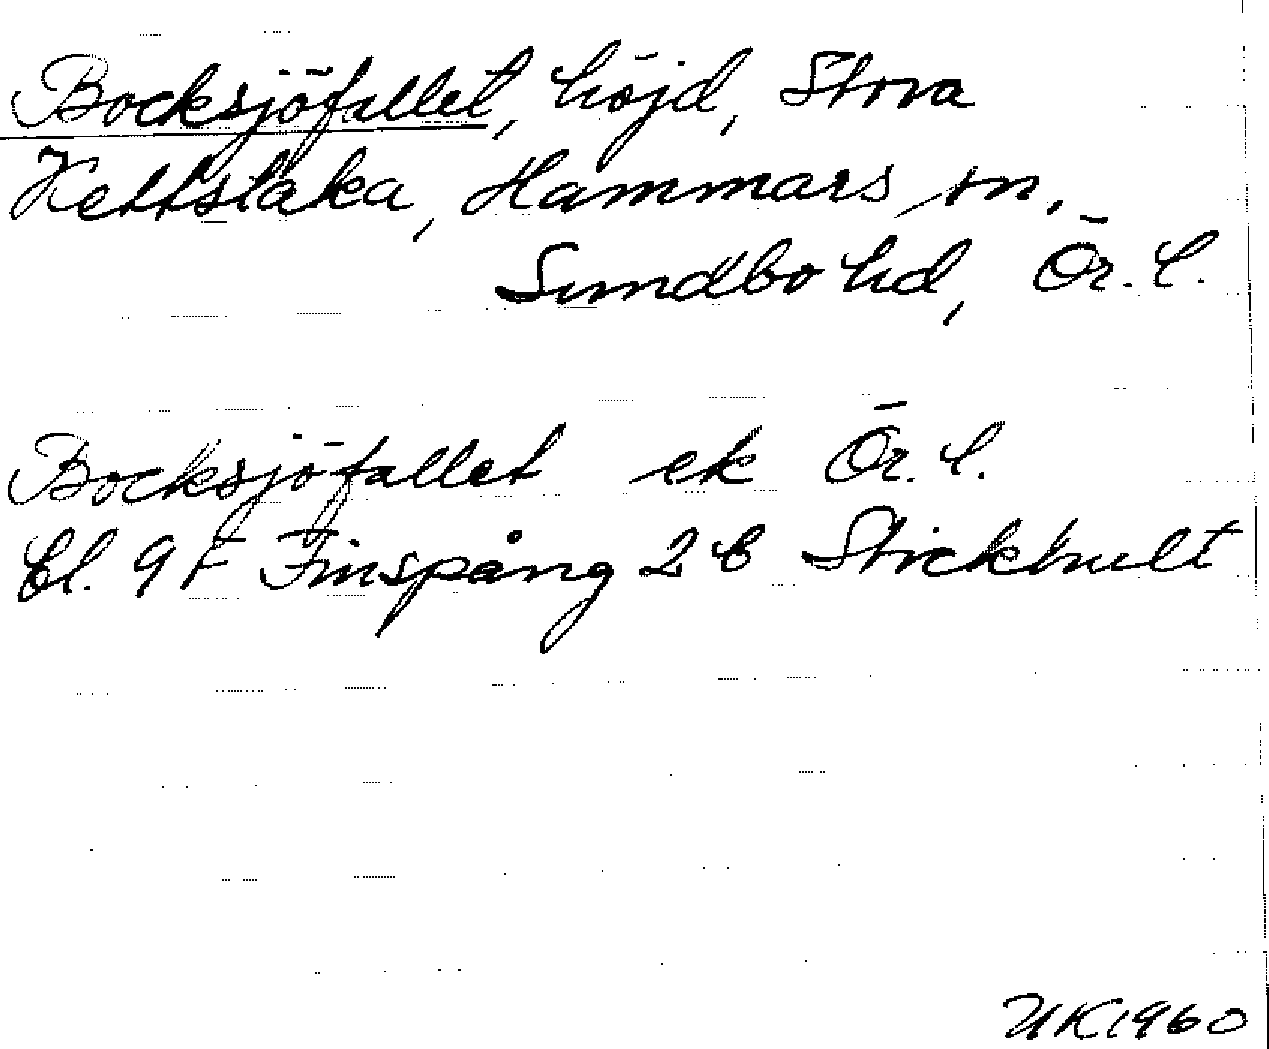 Bocksjöfallet, höjd, Stora
Hettstaka, Hammars sn,
Sundbo hd, Ör. l.
Bocksjöfallet ek Ör. l.
bl. 9 F Finspång 2 b Stickhult
UK 1960